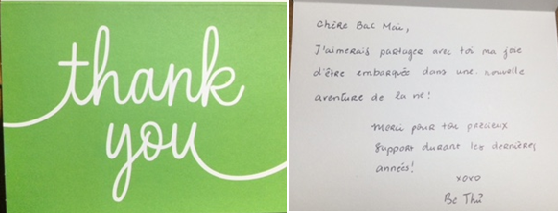 thank
you
Chère Bac Mai,
J'aimerais partager avec toi ma joie
d'être embarquée dans une nouvelle
aventure de la vie!
Merci pour ton précieux
support durant les dernières
années!
xoxo
Be Thű